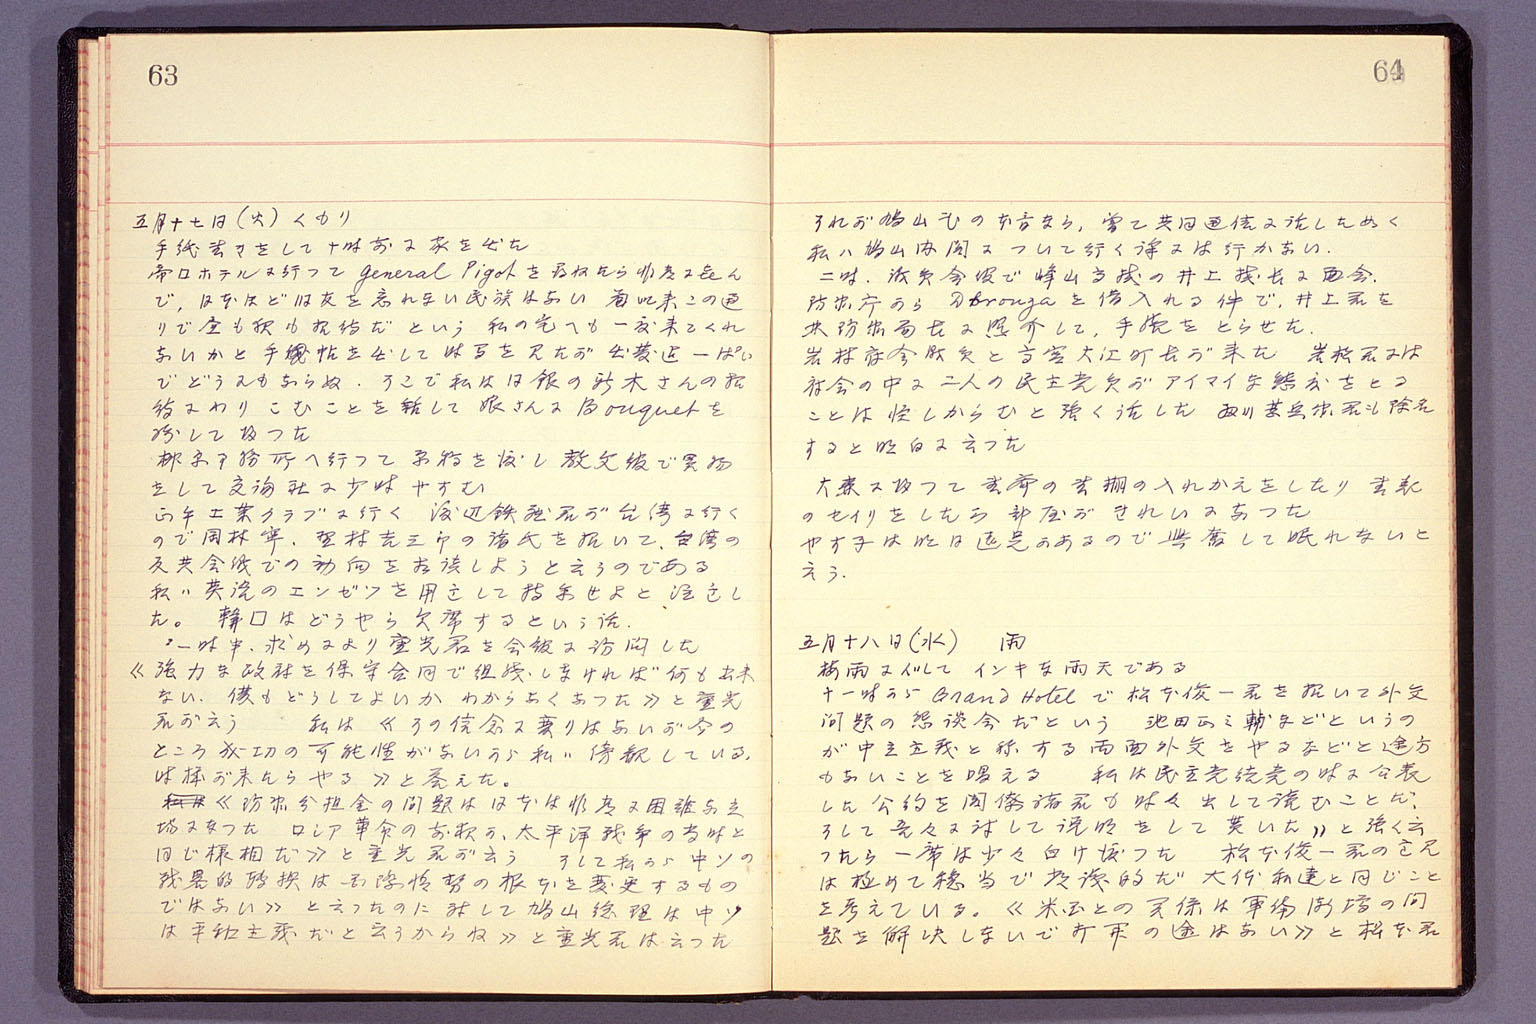 63
五月十七日(火) くもり
手紙書きをして十時前に家を出た
帝国ホテルに行って General Pigot を尋ねたら非常に喜ん
で、日本人ほど旧友を忘れない民族はない 着以来この通
りで昼も夜も招待だ という 私の宅へも一度来てくれ
ないかと 手帖を出して時日を見たが 出発迄一ぱい
でどうにもならぬ. そこで私は日銀の新木さんの招
待にわりこむことを話して 娘さんに Bouquet を
して 帰つた
事務所へ行つて 原稿を渡し 教文館で買物
をして 交詢社に少時やすむ
正午工業クラブに行く 渡辺銕蔵君が台湾に行く
ので 諸氏を招いて、台湾の
反共会議での動向をお話しようと云うのである
私ハ英語のエンゼツを用意して持参せよと注意し
た。 韓国はどうやら欠席するという話.
一時半、求めにより重光君を会館に訪問した
《強力な政府を保守合同で組織しなければ何も出来
ない. 僕もどうしてよいか わからなくなつた》と重光
君が云う 私は《その信念に変りはないが今の
ところ成功の可能性がないから私ハ傍観している.
時機が来たらやる》と答えた。
《防衛分担金の問題は日本は非常に困難な立
場になつた ロシア革命の前夜か、太平洋戦争の当時と
同じ様相だ》と重光君が云う そして私が 中ソの
戦略的転換は国際情勢の根本を変更するもの
ではない》と云つたのに対して 鳩山総理は中ソ
は平和主義だと云うからね》と重光君は云つた
64
それが鳩山氏の本音なら、曽て共同通信に話した如く
私ハ鳩山内閣について行く訳には行かない.
二時. 議員会館で峰山高校の井上校長に面会.
防衛庁から を借入れる件で、井上君を
防衛局長に照介して、手続をとらせた.
府会議員と 大江町長が来た 君には
府会の中に二人の民主党員がアイマイな態度をとる
ことは怪しからむと強く話した 除名
すると明白に云つた
大森に帰つて 書斎の書棚の入れかえをしたり 書类
のセイリをしたら 部屋がきれいになつた
やす子は明日遠足があるので興奮して眠れないと
云う.
五月十八日(水) 雨
梅雨に似して インキな雨天である
十一時から Grand Hotel で 松本俊一君を招いて外交
問題の懇談会だという 池田正之輔などというの
が中立主義と称する両面外交をやるなどと途方
もないことを唱える 私は民主党結党の時に公表
した公約を閣僚諸君も時々出して読むことだ.
そして吾々に対して説明をして貰いたい》と強く云
つたら 一席は少々白け渡つた 松本俊一君の意見
は極めて穏当で常識的だ 大体私達と同じこと
を考えている。《米国との関係は軍備増の問
題を解決しないで打開の途はない》と松本君